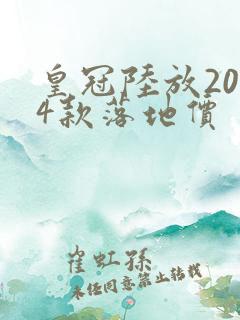 皇冠陸放20
4款落地價
崔虹孫
未经同意禁止转载